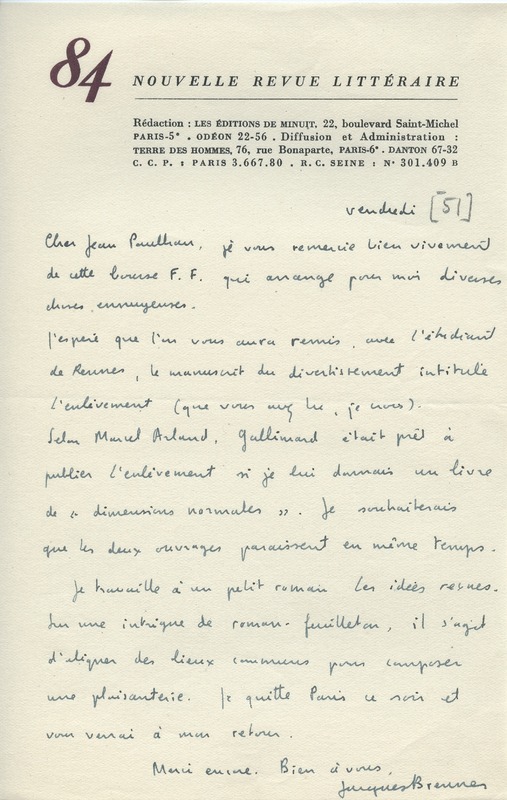 84
NOUVELLE REVUE LITTÉRAIRE
Rédaction : LES ÉDITIONS DE MINUIT, 22, boulevard Saint-Michel
PARIS-5e . ODÉON 22-56 . Diffusion et Administration :
TERRE DES HOMMES, 76, rue Bonaparte, PARIS-6e . DANTON 67-32
C. C. P. : PARIS 3.667.80 . R. C. SEINE : No 301.409 B
vendredi [51]
Cher Jean Paulhan, je vous remercie bien vivement
de cette bourse F. F. qui arrange pour moi diverses
choses ennuyeuses.
J'espère que l'on vous aura remis, avec l'étudiant
de Rennes, le manuscrit du divertissement intitulé
l'enlèvement (que vous avez lu, je crois).
Selon Marcel Arland, Gallimard était prêt à
publier l'enlèvement si je lui donnais un livre
de « dimensions normales ». Je souhaiterais
que les deux ouvrages paraissent en même temps.
Je travaille à un petit roman Les idées reçues.
Sur une intrigue de roman-feuilleton, il s'agit
d'aligner des lieux communs pour composer
une plaisanterie. Je quitte Paris ce soir et
vous verrai à mon retour.
Merci encore. Bien à vous,
Jacques Brenner